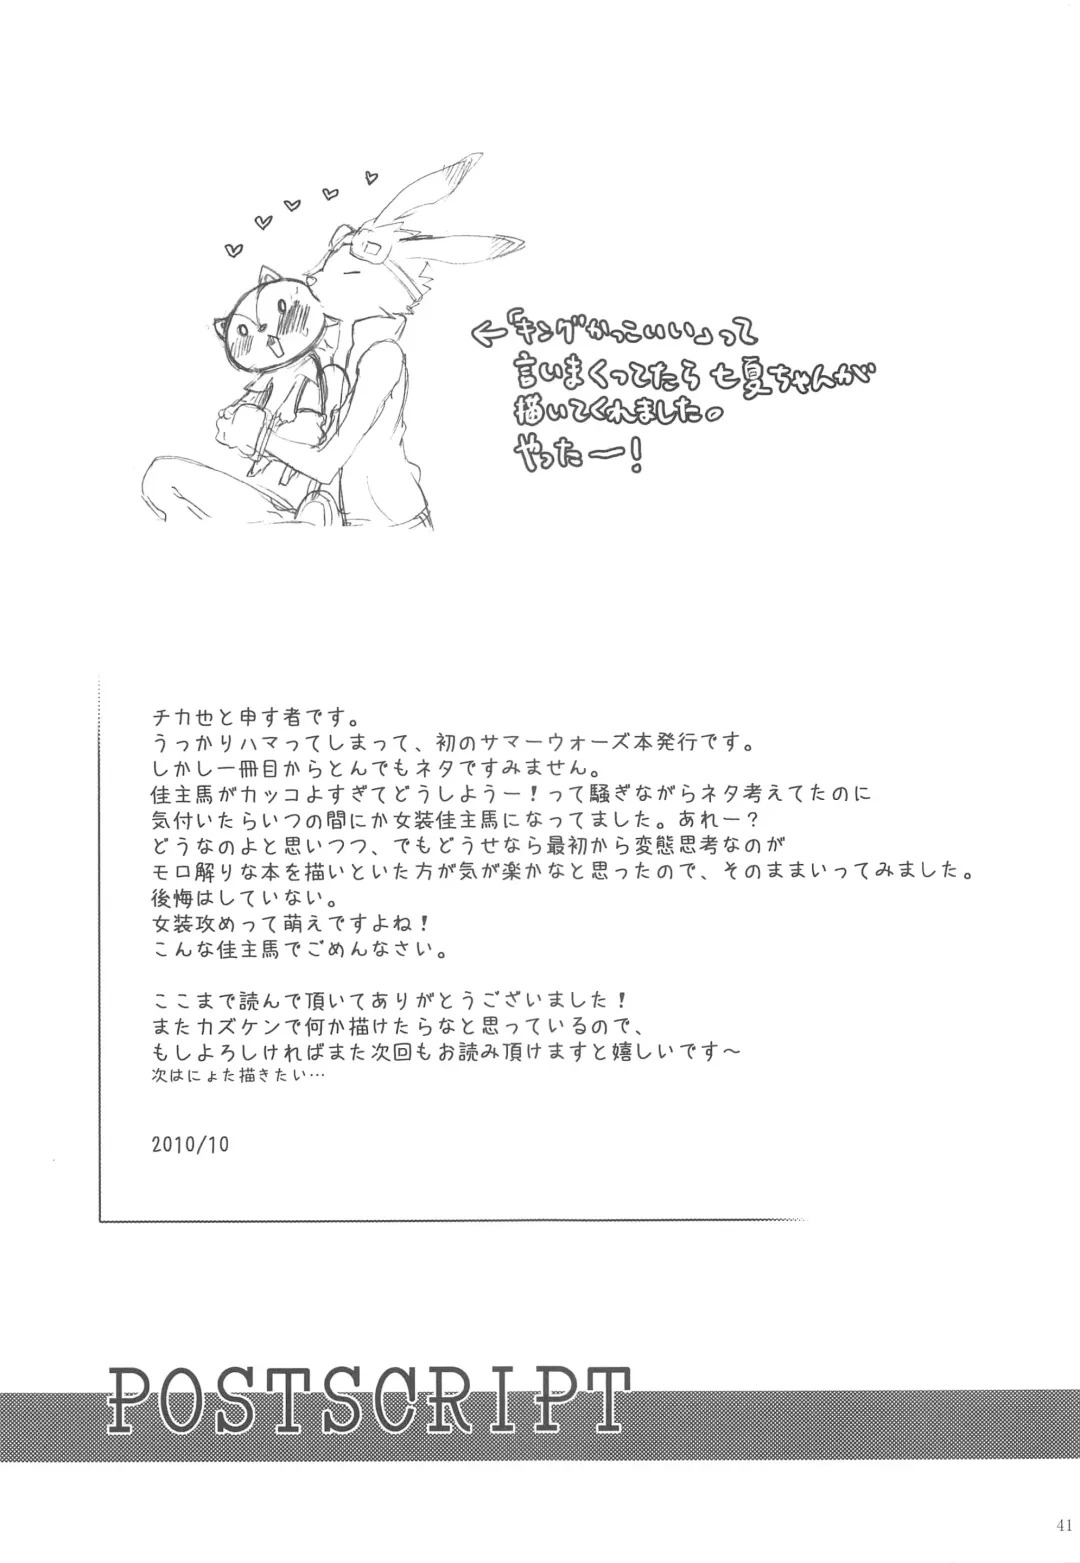 ←「キングかっこいい」って
言いまくってたら七夏ちゃんが
描いてくれました。
やったー！
チカ也と申す者です。
うっかりハマってしまって、初のサマーウォーズ本発行です。
しかし一冊目からとんでもネタですみません。
佳主馬がカッコよすぎてどうしようー！って騒ぎながらネタ考えてたのに
気付いたらいつの間にか女装佳主馬になってました。あれー？
どうなのよと思いつつ、でもどうせなら最初から変態思考なのが
モロ解りな本を描いといた方が気が楽かなと思ったので、そのままいってみました。
後悔はしていない。
女装攻めって萌えですよね！
こんな佳主馬でごめんなさい。
ここまで読んで頂いてありがとうございました！
またカズケンで何か描けたらなと思っているので、
もしよろしければまた次回もお読み頂けますと嬉しいです～
次はにょた描きたい…
2010/10
POSTSCRIPT
41